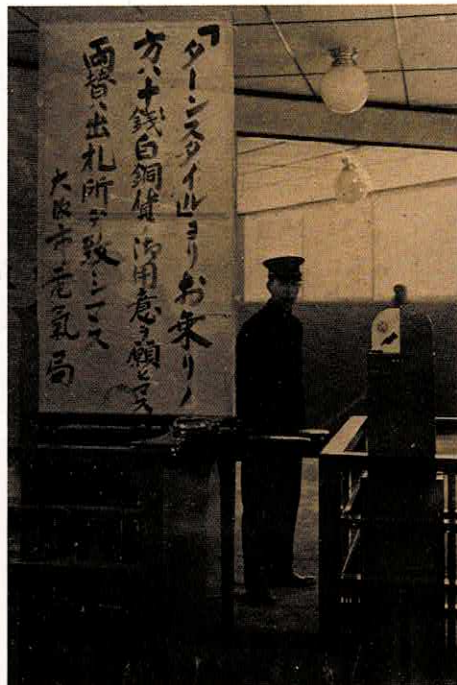 「ターンスタイル」ヨリお乗リノ
方ハ十銭白銅貨ノ御用意ヲ願ヒマス
両替ハ出札所デ致シマス
大阪市電気局